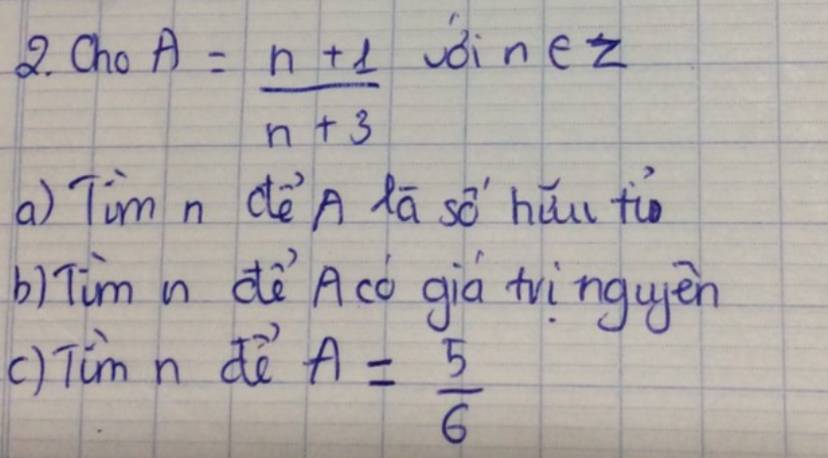 2. Cho A = n + 1 / n + 3 với n ∈ Z
a) Tìm n để A là số hữu tỉ
b) Tìm n để A có giá trị nguyên
c) Tìm n để A = 5 / 6